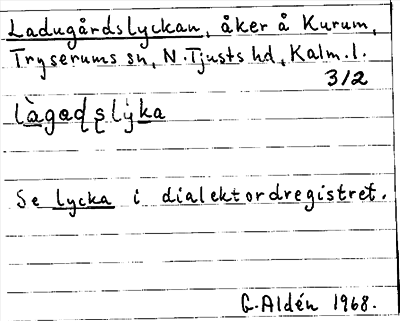 Ladugårdslyckan, åker å Kurum,
Tryserums sn, N. Tjusts hd, Kalm. l.
312
Se lycka i dialektordregistret.
G. Aldén 1968.